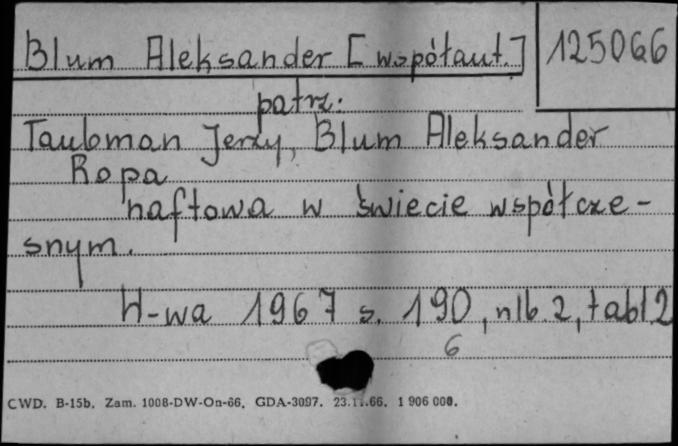 Blum Aleksander [współaut.] 125066
patrz:
Taubman Jerzy, Blum Aleksander
Ropa
naftowa w świecie współcze-
snym.
W-wa 1967 s. 190, nlb. 2, tabl 2
6
CWD. B-15b. Zam. 1008-DW-On-66. GDA-3097. 23.11.66. 1 906 000.